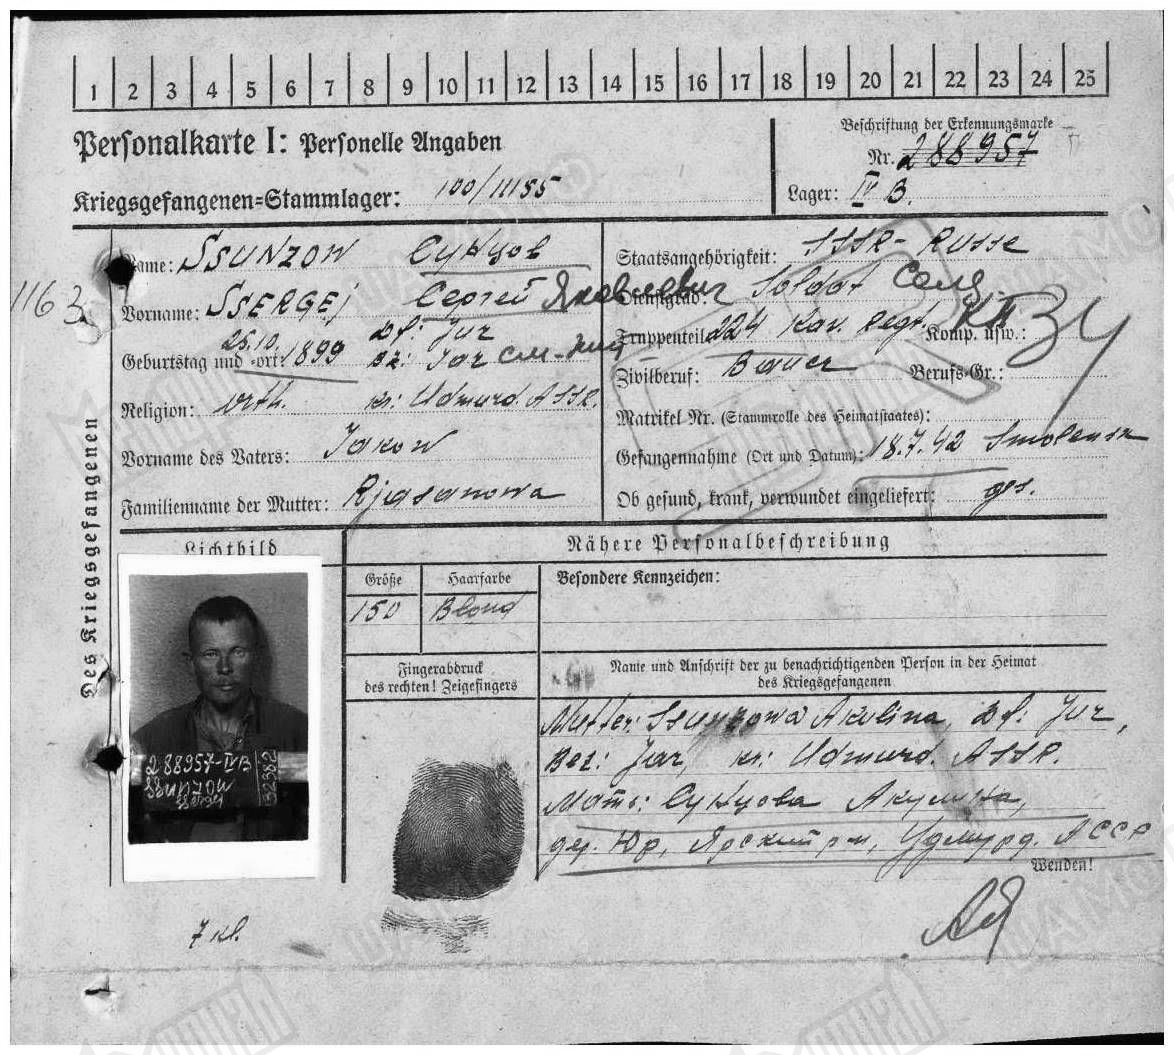 1 2 3 4 5 6 7 8 9 10 11 12 13 14 15 16 17 18 19 20 21 22 23 24 25
Personalkarte I: Personelle Angaben
Kriegsgefangenen=Stammlager: 100/11155
Beschriftung der Erkennungsmarke
Nr. 288957
Lager: IV B.
Des Kriegsgefangenen
1163
Name: SSUNZOW Сунцов
Vorname: SSERGEJ Сергей Яковлевич
Geburtstag und =ort: 25.10.1899 Df: Jur
Bz: Jar
Religion: orth. kr: Udmurd ASSR.
Vorname des Vaters: Jakow
Familienname der Mutter: Rjasanowa
Staatsangehörigkeit: SSSR- Russe
Dienstgrad: Soldat
Truppenteil: 224 Kav. Regt. Komp. usw.:
Zivilberuf: Bauer Berufs-Gr.:
Matrikel Nr. (Stammrolle des Heimatstaates):
Gefangennahme (Ort und Datum): 18.7.42 Smolensk
Ob gesund, krank, verwundet eingeliefert: ges.
Lichtbild
288957-IVB
SSUNZOW
SSergej
Nähere Personalbeschreibung
Größe Haarfarbe Besondere Kennzeichen:
150 Blond
Fingerabdruck
des rechten! Zeigefingers
Name und Anschrift der zu benachrichtigenden Person in der Heimat
des Kriegsgefangenen
Mutter: Ssunzowa Akulina, Df: Jur,
Bez: Jar, kr: Udmurd. ASSR.
Мать: Сунцова Акулина,
дер. Юр, Ярский р-н, Удмурд. АССР
Wenden!
7 kl.